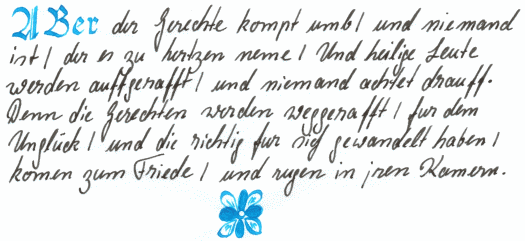 ABer der Gerechte kompt umb/ und niemand
ist/ der es zu hertzen neme/ Und heilige Leute
werden auffgerafft/ und niemand achtet drauff.
Denn die Gerechten werden weggerafft/ fur dem
Unglück/ und die richtig fur sich gewandelt haben/
komen zum Friede/ und rugen in jren Kamern.